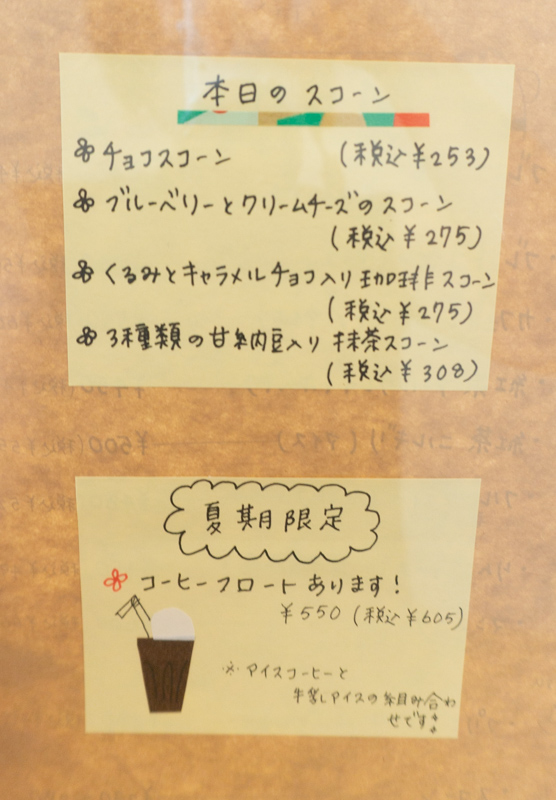 本日のスコーン
チョコスコーン (税込¥253)
ブルーベリーとクリームチーズのスコーン
(税込¥275)
くるみとキャラメルチョコ入り珈琲スコーン
(税込¥275)
3種類の甘納豆入り 抹茶スコーン
(税込¥308)
夏期限定
コーヒーフロートあります!
¥550 (税込¥605)
※アイスコーヒーと
アイスの組み合わ
せです